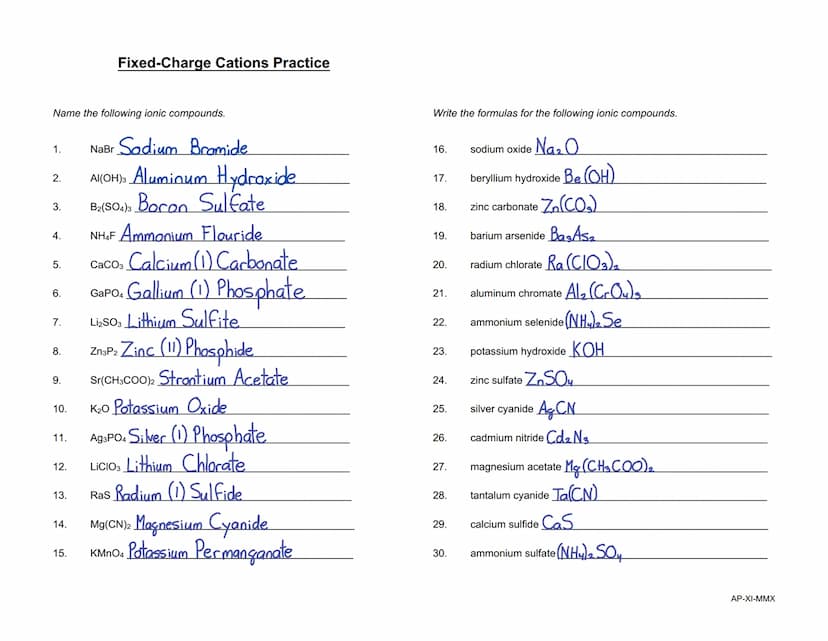 Fixed-Charge Cations Practice
Name the following ionic compounds.
1. NaBr Sodium Bromide
2. Al(OH)₃ Aluminum Hydroxide
3. B₂(SO₄)₃ Boron Sulfate
4. NH₄F Ammonium Flouride
5. CaCO₃ Calcium (I) Carbonate
6. GaPO₄ Gallium (I) Phosphate
7. Li₂SO₃ Lithium Sulfite
8. Zn₃P₂ Zinc (II) Phosphide
9. Sr(CH₃COO)₂ Strontium Acetate
10. K₂O Potassium Oxide
11. Ag₃PO₄ Silver (I) Phosphate
12. LiClO₃ Lithium Chlorate
13. RaS Radium (I) Sulfide
14. Mg(CN)₂ Magnesium Cyanide
15. KMnO₄ Potassium Permanganate
Write the formulas for the following ionic compounds.
16. sodium oxide Na₂O
17. beryllium hydroxide Be(OH)
18. zinc carbonate Zn(CO₃)
19. barium arsenide Ba₃As₂
20. radium chlorate Ra(ClO₃)₂
21. aluminum chromate Al₂(CrO₄)₃
22. ammonium selenide (NH₄)₂Se
23. potassium hydroxide KOH
24. zinc sulfate ZnSO₄
25. silver cyanide AgCN
26. cadmium nitride Cd₂N₃
27. magnesium acetate Mg(CH₃COO)₂
28. tantalum cyanide Ta(CN)
29. calcium sulfide CaS
30. ammonium sulfate (NH₄)₂SO₄
AP-XI-MMX